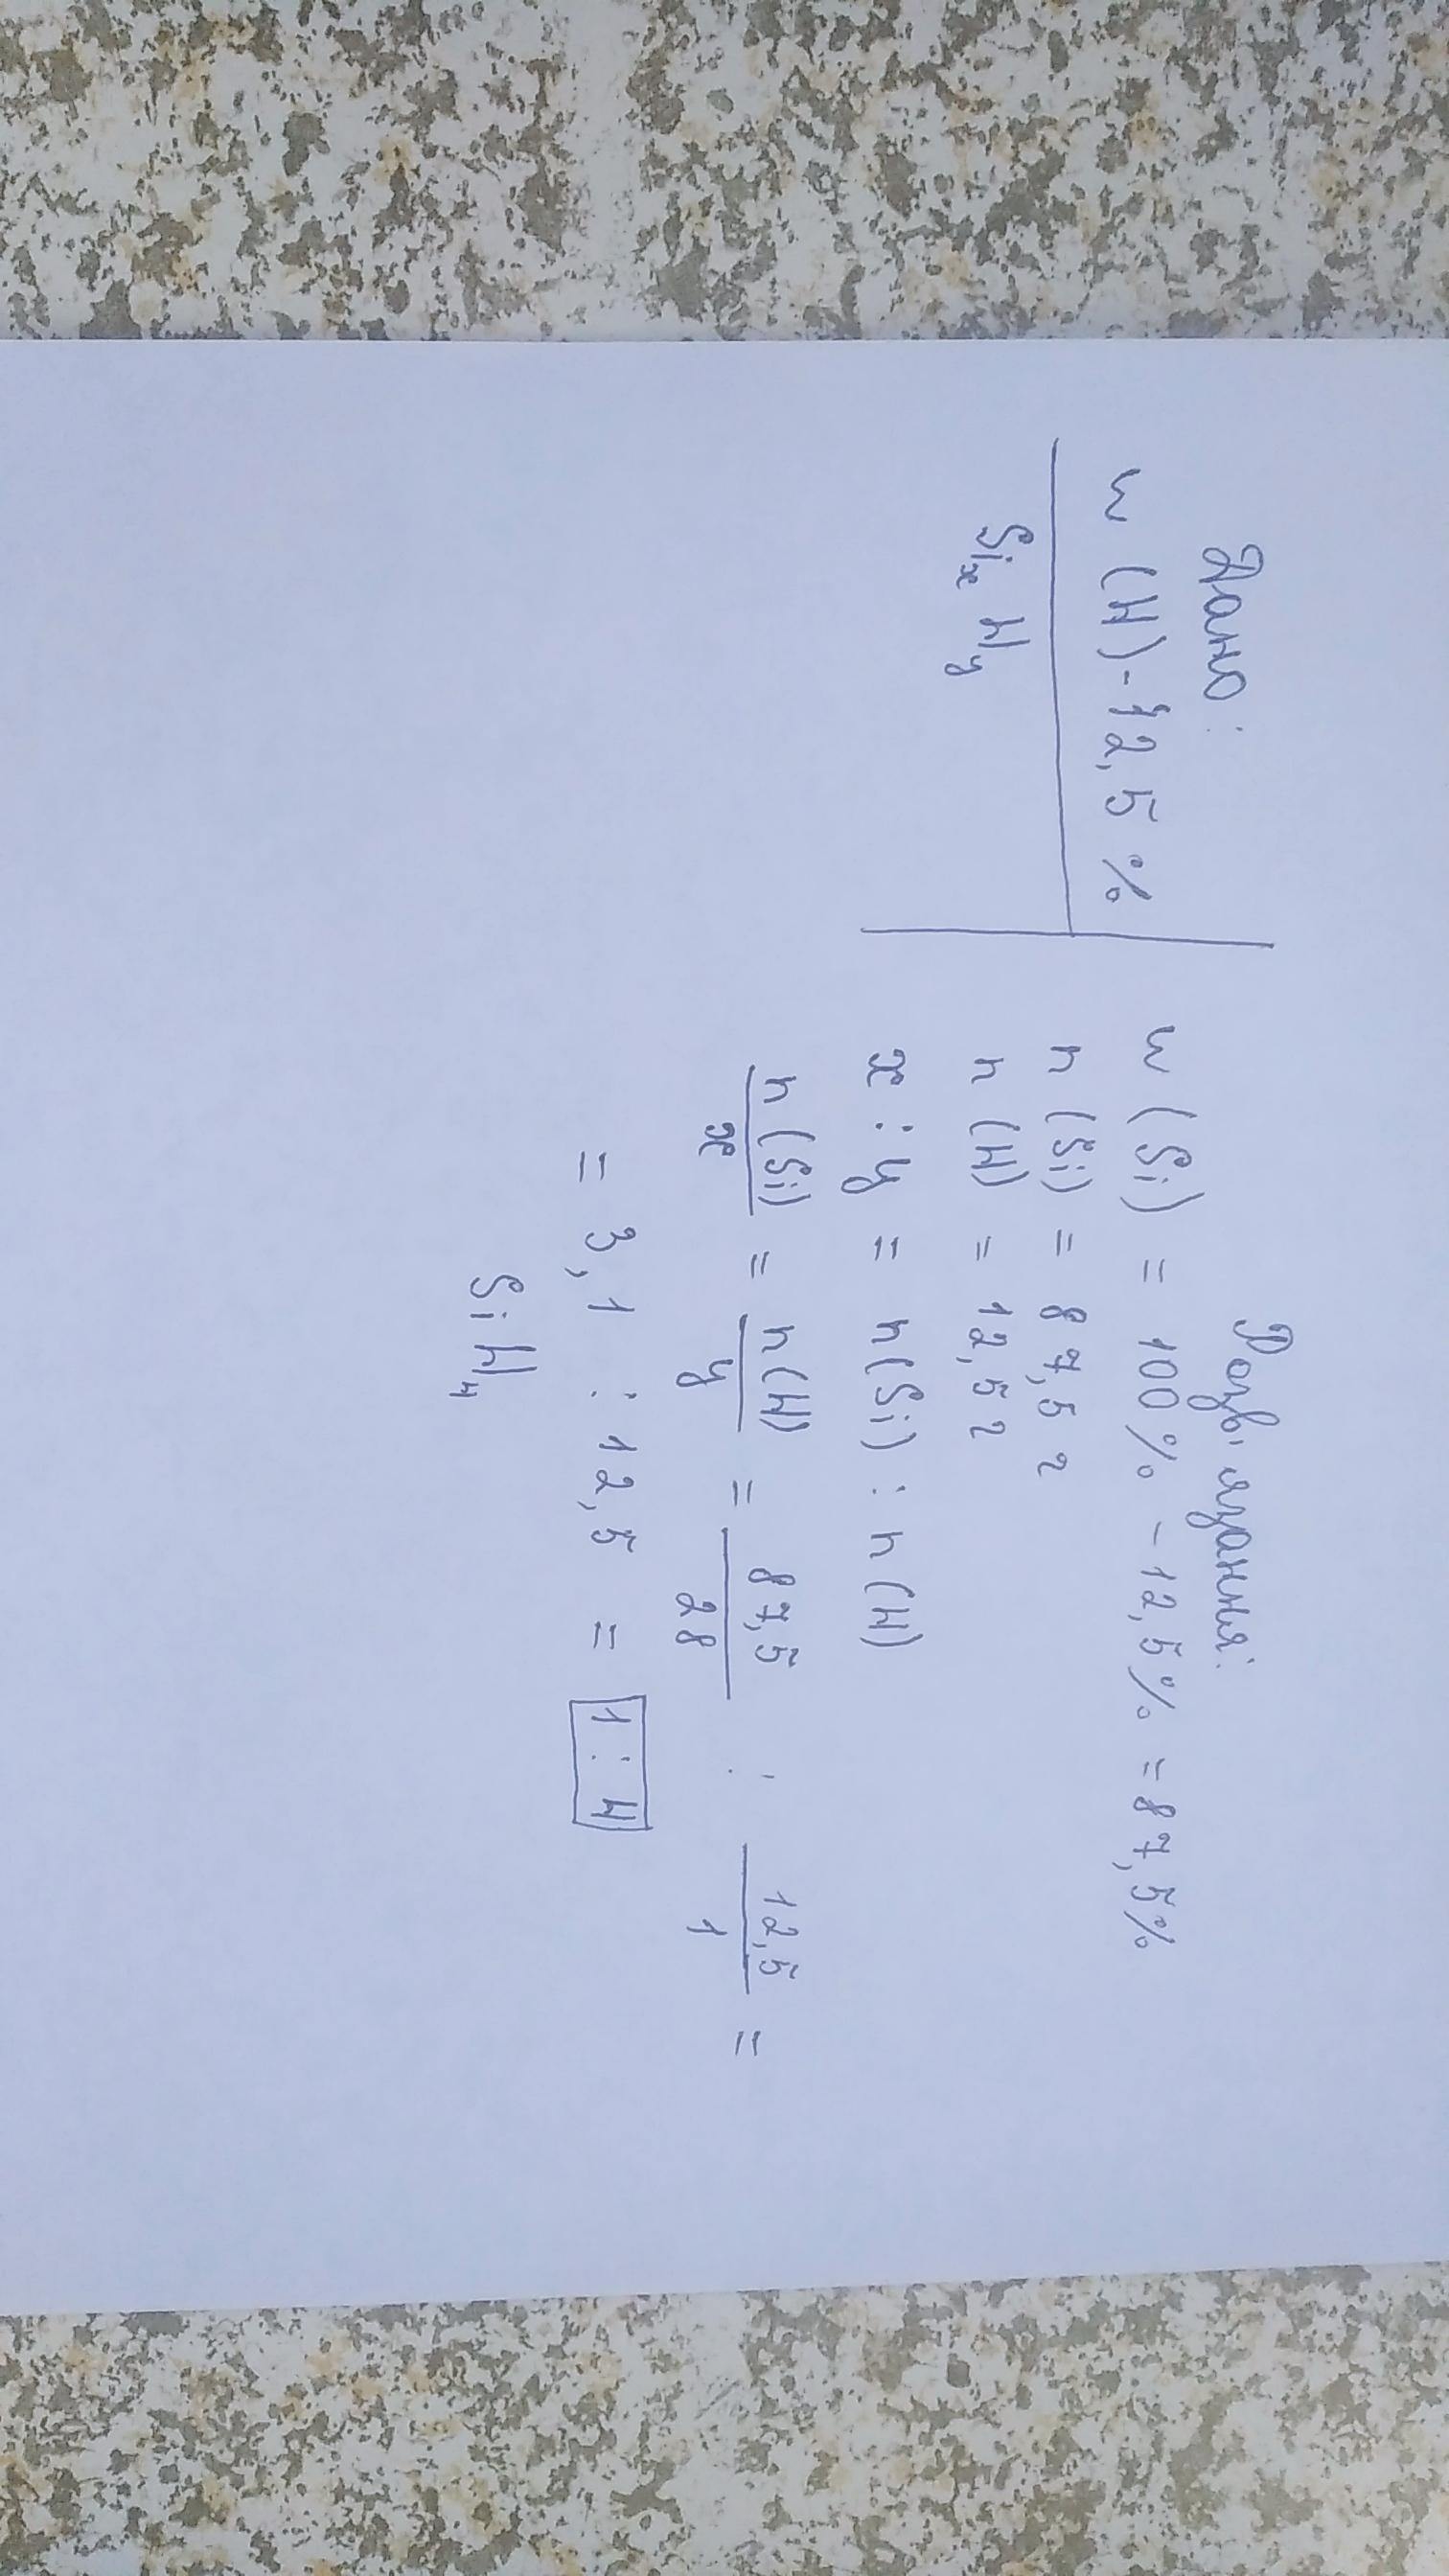 Дано:
w (H) - 12,5 %
Six Hy
Розв'язання:
w (Si) = 100 % - 12,5 % = 87,5 %
n (Si) = 87,5 г
n (H) = 12,5 г
x : y = n (Si) : n (H)
n (Si) / x = n (H) / y = 87,5 / 28 : 12,5 / 1 =
= 3,1 : 12,5 = 1 : 4
Si H4